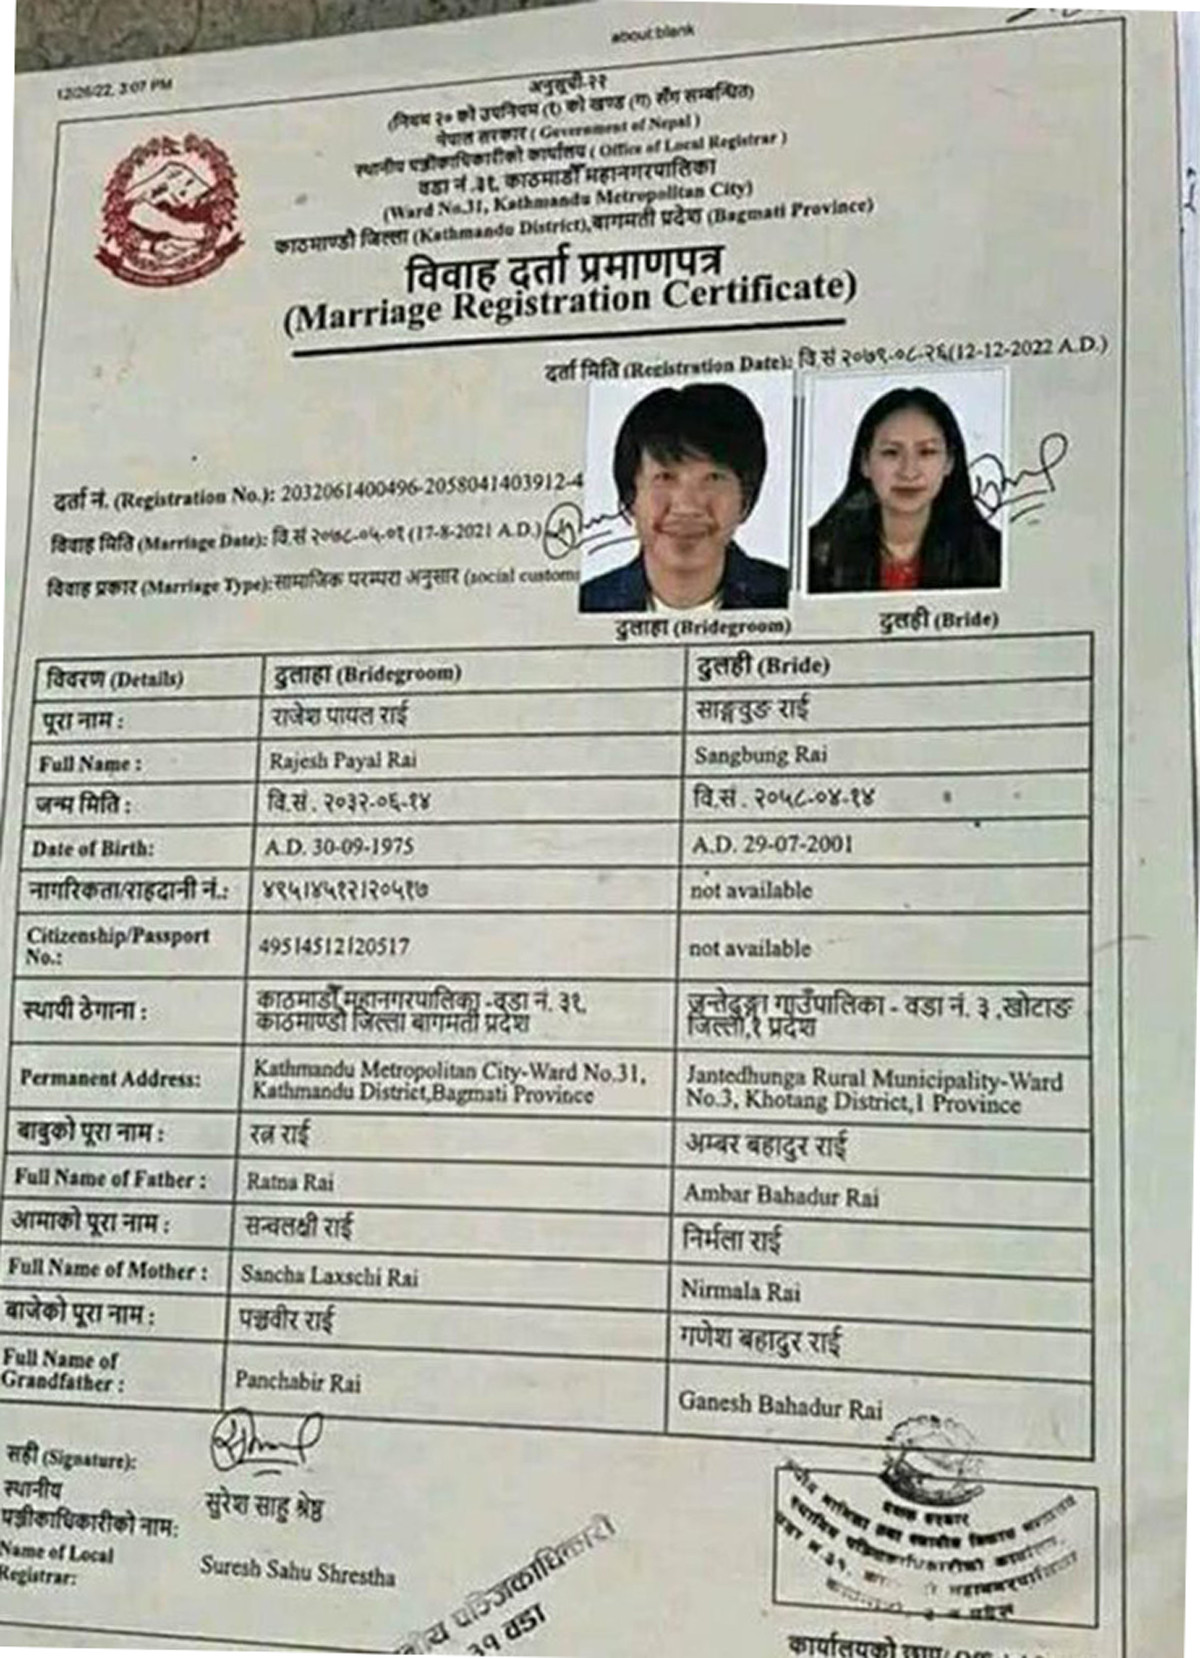 about:blank
12/26/22, 3:07 PM
अनुसूची-२२
(नियम २० को उपनियम (१) को खण्ड (ग) सँग सम्बन्धित)
नेपाल सरकार ( Government of Nepal )
स्थानीय पञ्जीकाधिकारीको कार्यालय ( Office of Local Registrar )
वडा नं .३१, काठमाडौँ महानगरपालिका
(Ward No.31, Kathmandu Metropolitan City)
काठमाण्डौ जिल्ला (Kathmandu District),बागमती प्रदेश (Bagmati Province)
विवाह दर्ता प्रमाणपत्र
(Marriage Registration Certificate)
दर्ता मिति (Registration Date): वि.सं २०७९-०८-२६(12-12-2022 A.D.)
दर्ता नं. (Registration No.): 2032061400496-2058041403912-4
विवाह मिति (Marriage Date): वि.सं २०७८-०५-०१ (17-8-2021 A.D.)
विवाह प्रकार (Marriage Type): सामाजिक परम्परा अनुसार (social custom
दुलाहा (Bridegroom) दुलही (Bride)
विवरण (Details) दुलाहा (Bridegroom) दुलही (Bride)
पूरा नाम : राजेश पायल राई साङ्गवुङ राई
Full Name : Rajesh Payal Rai Sangbung Rai
जन्म मिति : वि.सं . २०३२-०६-१४ वि.सं . २०५८-०४-१४
Date of Birth: A.D. 30-09-1975 A.D. 29-07-2001
नागरिकता/राहदानी नं.: ४९५।४५१२।२०५१७ not available
Citizenship/Passport No.: 495।4512।20517 not available
स्थायी ठेगाना : काठमाडौँ महानगरपालिका -वडा नं. ३१, काठमाण्डौ जिल्ला बागमती प्रदेश जन्तेढुङ्गा गाउँपालिका - वडा नं. ३ ,खोटाङ जिल्ला,१ प्रदेश
Permanent Address: Kathmandu Metropolitan City-Ward No.31, Kathmandu District,Bagmati Province Jantedhunga Rural Municipality-Ward No.3, Khotang District,1 Province
बाबुको पूरा नाम : रत्न राई अम्बर बहादुर राई
Full Name of Father : Ratna Rai Ambar Bahadur Rai
आमाको पूरा नाम : सन्चलक्षी राई निर्मला राई
Full Name of Mother : Sancha Laxschi Rai Nirmala Rai
बाजेको पूरा नाम : पञ्चवीर राई गणेश बहादुर राई
Full Name of Grandfather : Panchabir Rai Ganesh Bahadur Rai
सही (Signature):
स्थानीय
पञ्जीकाधिकारीको नाम: सुरेश साहु श्रेष्ठ
Name of Local
Registrar: Suresh Sahu Shrestha
पञ्जिकाधिकारी
३१ वडा
कार्यालयको छाप